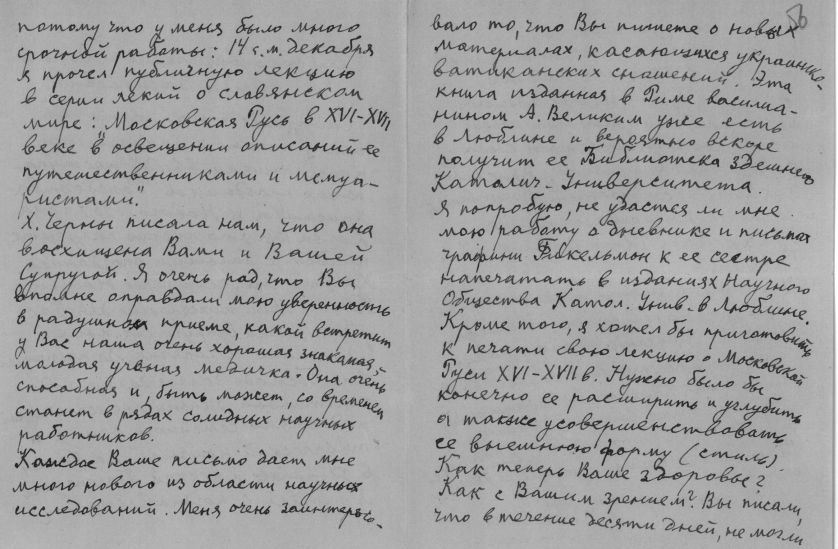 потому что у меня было много
срочной работы: 14 с.м. декабря
я прочел публичную лекцию
в серии лекий о славянском
мире: „Московская Русь в XVI-XVII
веке в освещении описаний ее
путешественниками и мемуа-
ристами."
Х. Черны писала нам, что она
восхищена Вами и Вашей
Супругой. Я очень рад, что Вы
вполне оправдали мою уверенность
в радушном приеме, какой встретит
у Вас наша очень хорошая знакомая, –
молодая ученая медичка. Она очень
способная и, быть может, со временем
станет в рядах солидных научных
работников.
Каждое Ваше письмо дает мне
много нового из области научных
исследований. Меня очень заинтересо-
56
вало то, что Вы пишете о новых
материалах, касающихся украинско-
ватиканских сношений. Эта
книга изданная в Риме василиа-
нином А. Великим уже есть
в Люблине и вероятно вскоре
получит ее Библиотека здешнего
Католич. Университета.
Я попробую, не удастся ли мне
мою работу о дневнике и письмах
графини Фикельмон к ее сестре
напечатать в изданиях Научного
Общества Катол. Унив. в Люблине.
Кроме того, я хотел бы приготовить
к печати свою лекцию о Московской
Руси XVI-XVII в. Нужно было бы
конечно ее расширить и углубить
а также усовершенствовать
ее внешнюю форму (стиль).
Как теперь Ваше здоровье?
Как с Вашим зрением? Вы писали,
что в течение десяти дней, не могли